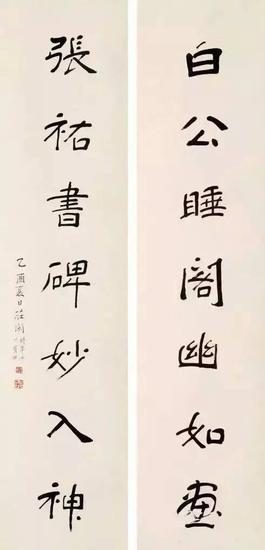 白公睡閣幽如畫
張祐書碑妙入神
乙酉夏日莊閑時年